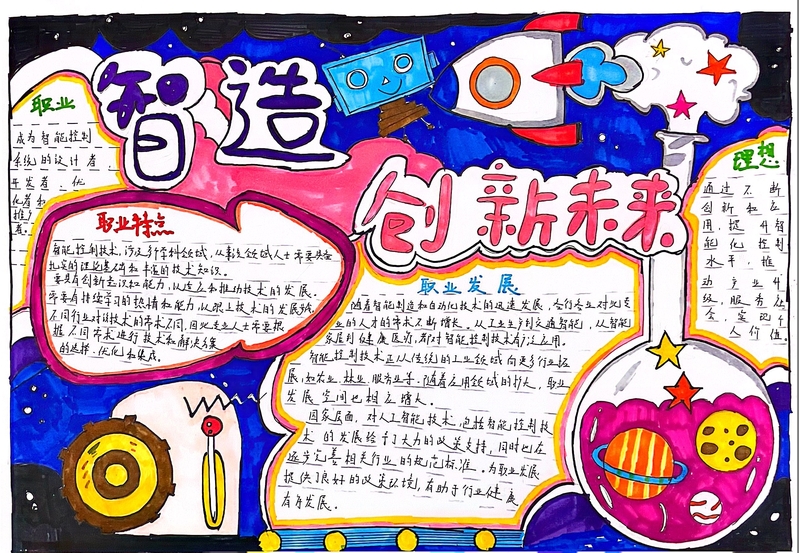 智造
创新未来
职业
成为智能控制
系统的设计者、
开发者、优
化者和
推
职业特点
智能控制技术，涉及多学科领域，从事该领域人士需要具备
扎实的理论基础和丰富的技术知识。
要具有创新意识和能力，以适应和推动技术的发展。
需要有持续学习的热情和能力，以跟上技术的发展
不同行业对该技术的需求不同，因此专业人士需要根
据不同需求进行技术和解决方案
的选择、优化和集成。
职业发展
随着智能制造和自动化技术的迅速发展，各行各业对此专
业的人才的需求不断增长。从工业生产到交通智能，从智能
家居到健康医疗，都对智能控制技术有广泛应用。
智能控制技术正从传统的工业领域向更多行业拓
展，如农业、林业、服务业等。随着应用领域的扩大，职业
发展空间也相应增大。
国家层面，对人工智能技术，包括智能控制技
术的发展给予了大力的政策支持，同时也在
逐步完善相关行业的规范标准。为职业发展
提供了良好的政策环境，有助于行业健康
有序发展。
理想
通过不断
创新和应
用，提升智
能化控制
水平，推
动产业升
级，服务社
会，实现个
人价值。